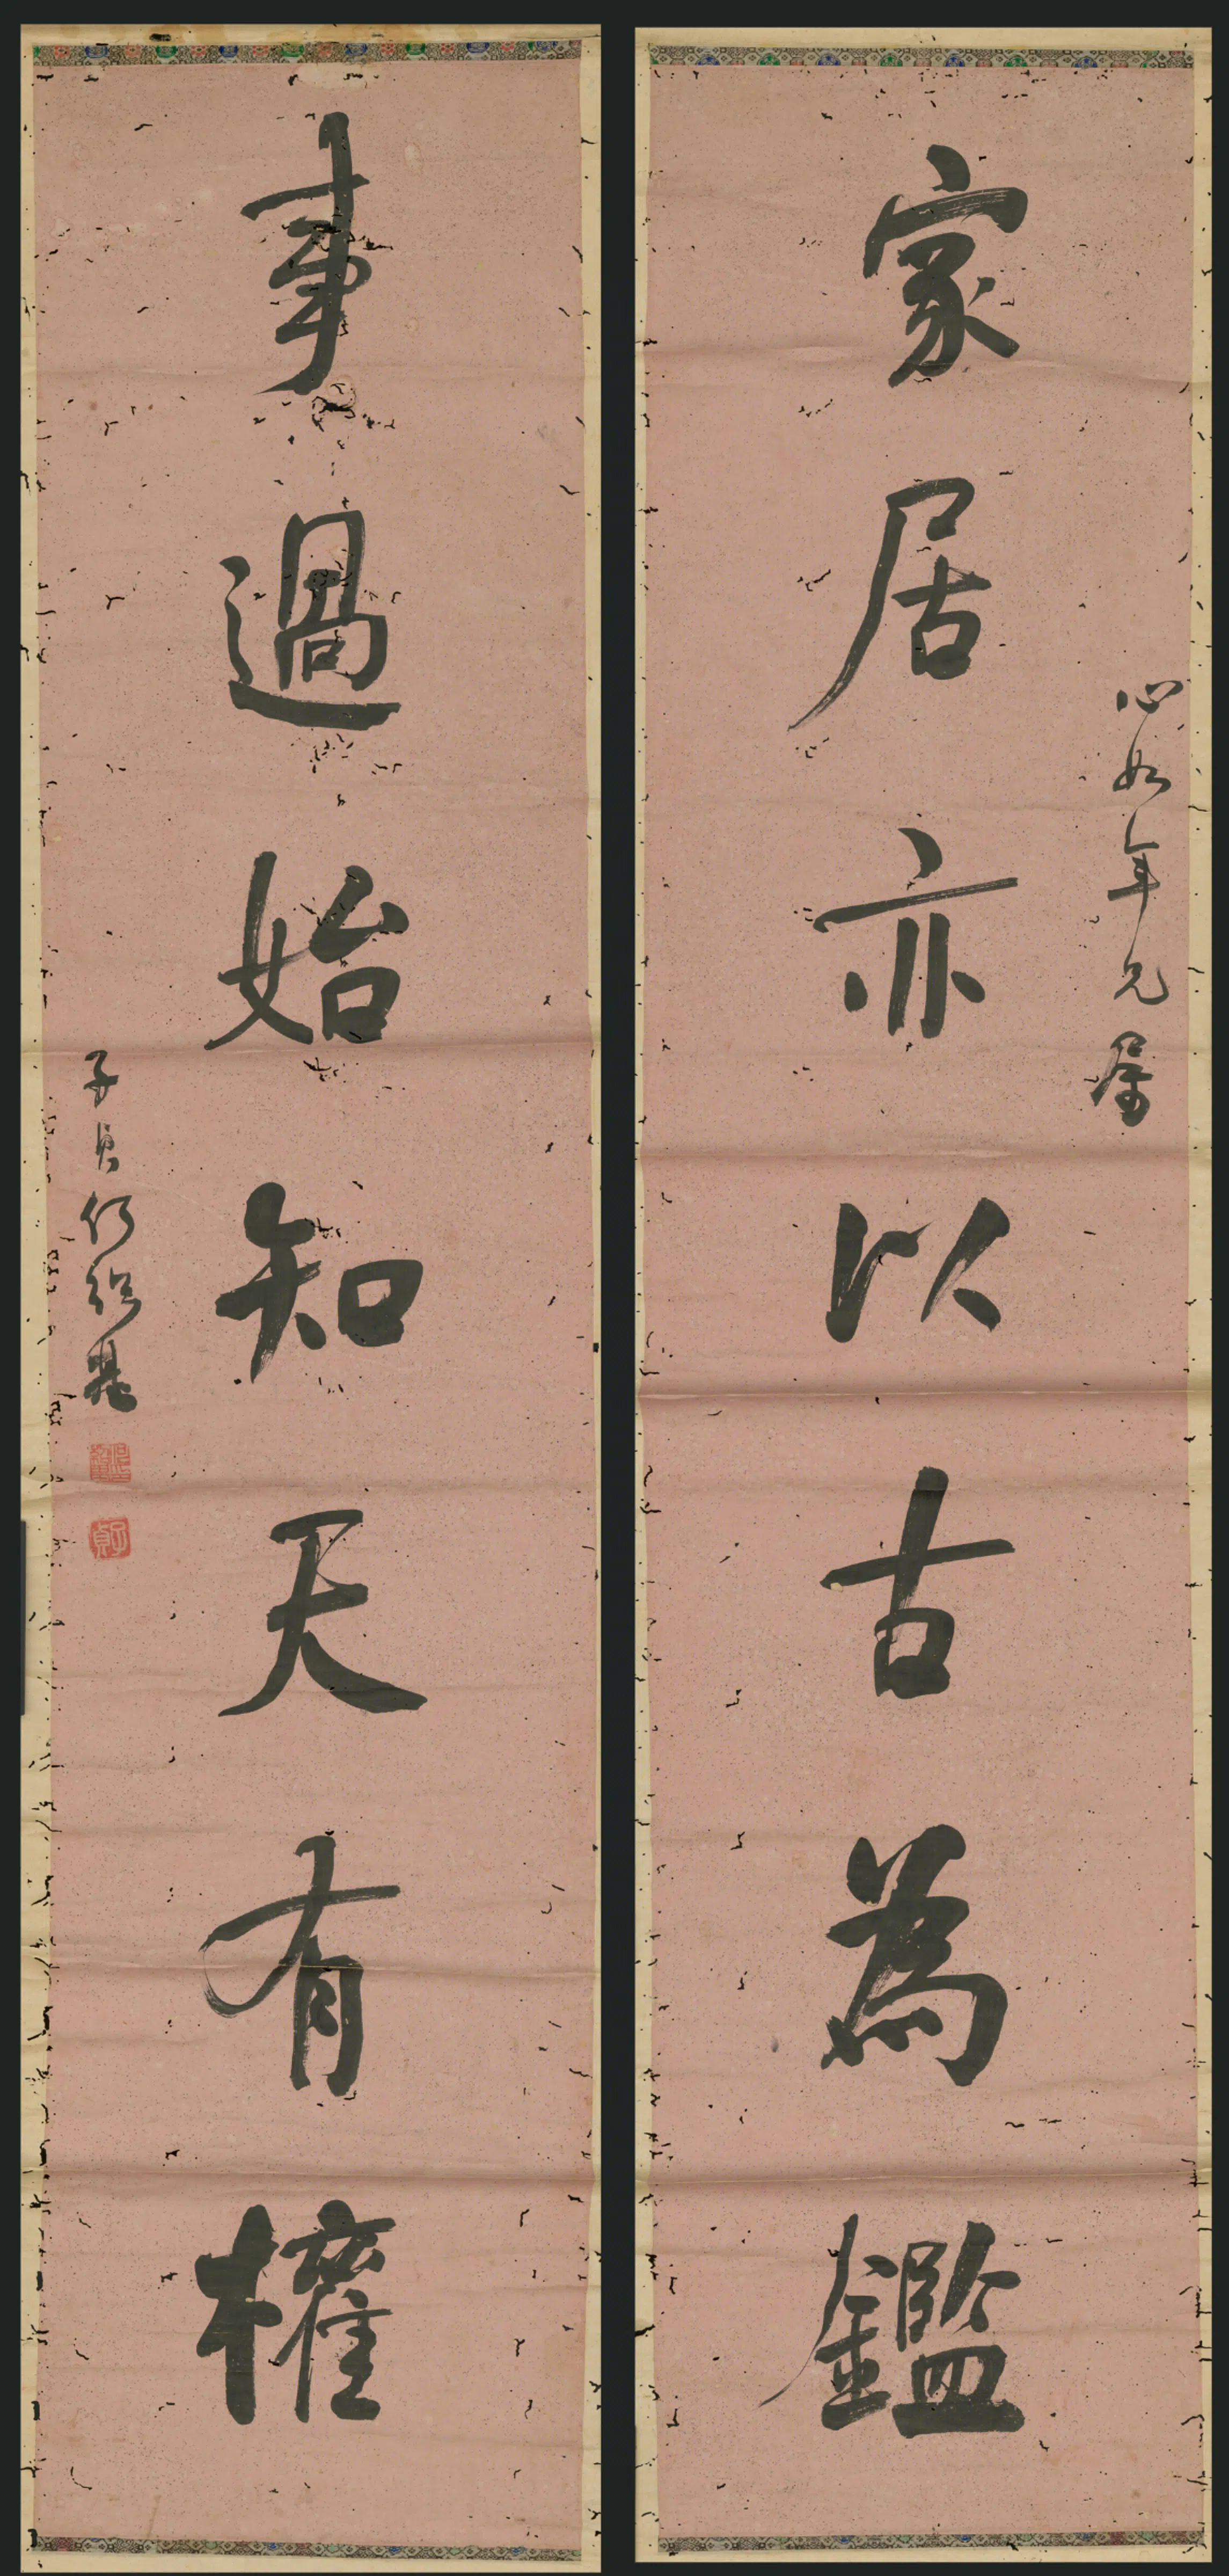 心如年兄屬
家居亦以古為鑑
事過始知天有權
子貞何紹基
子貞